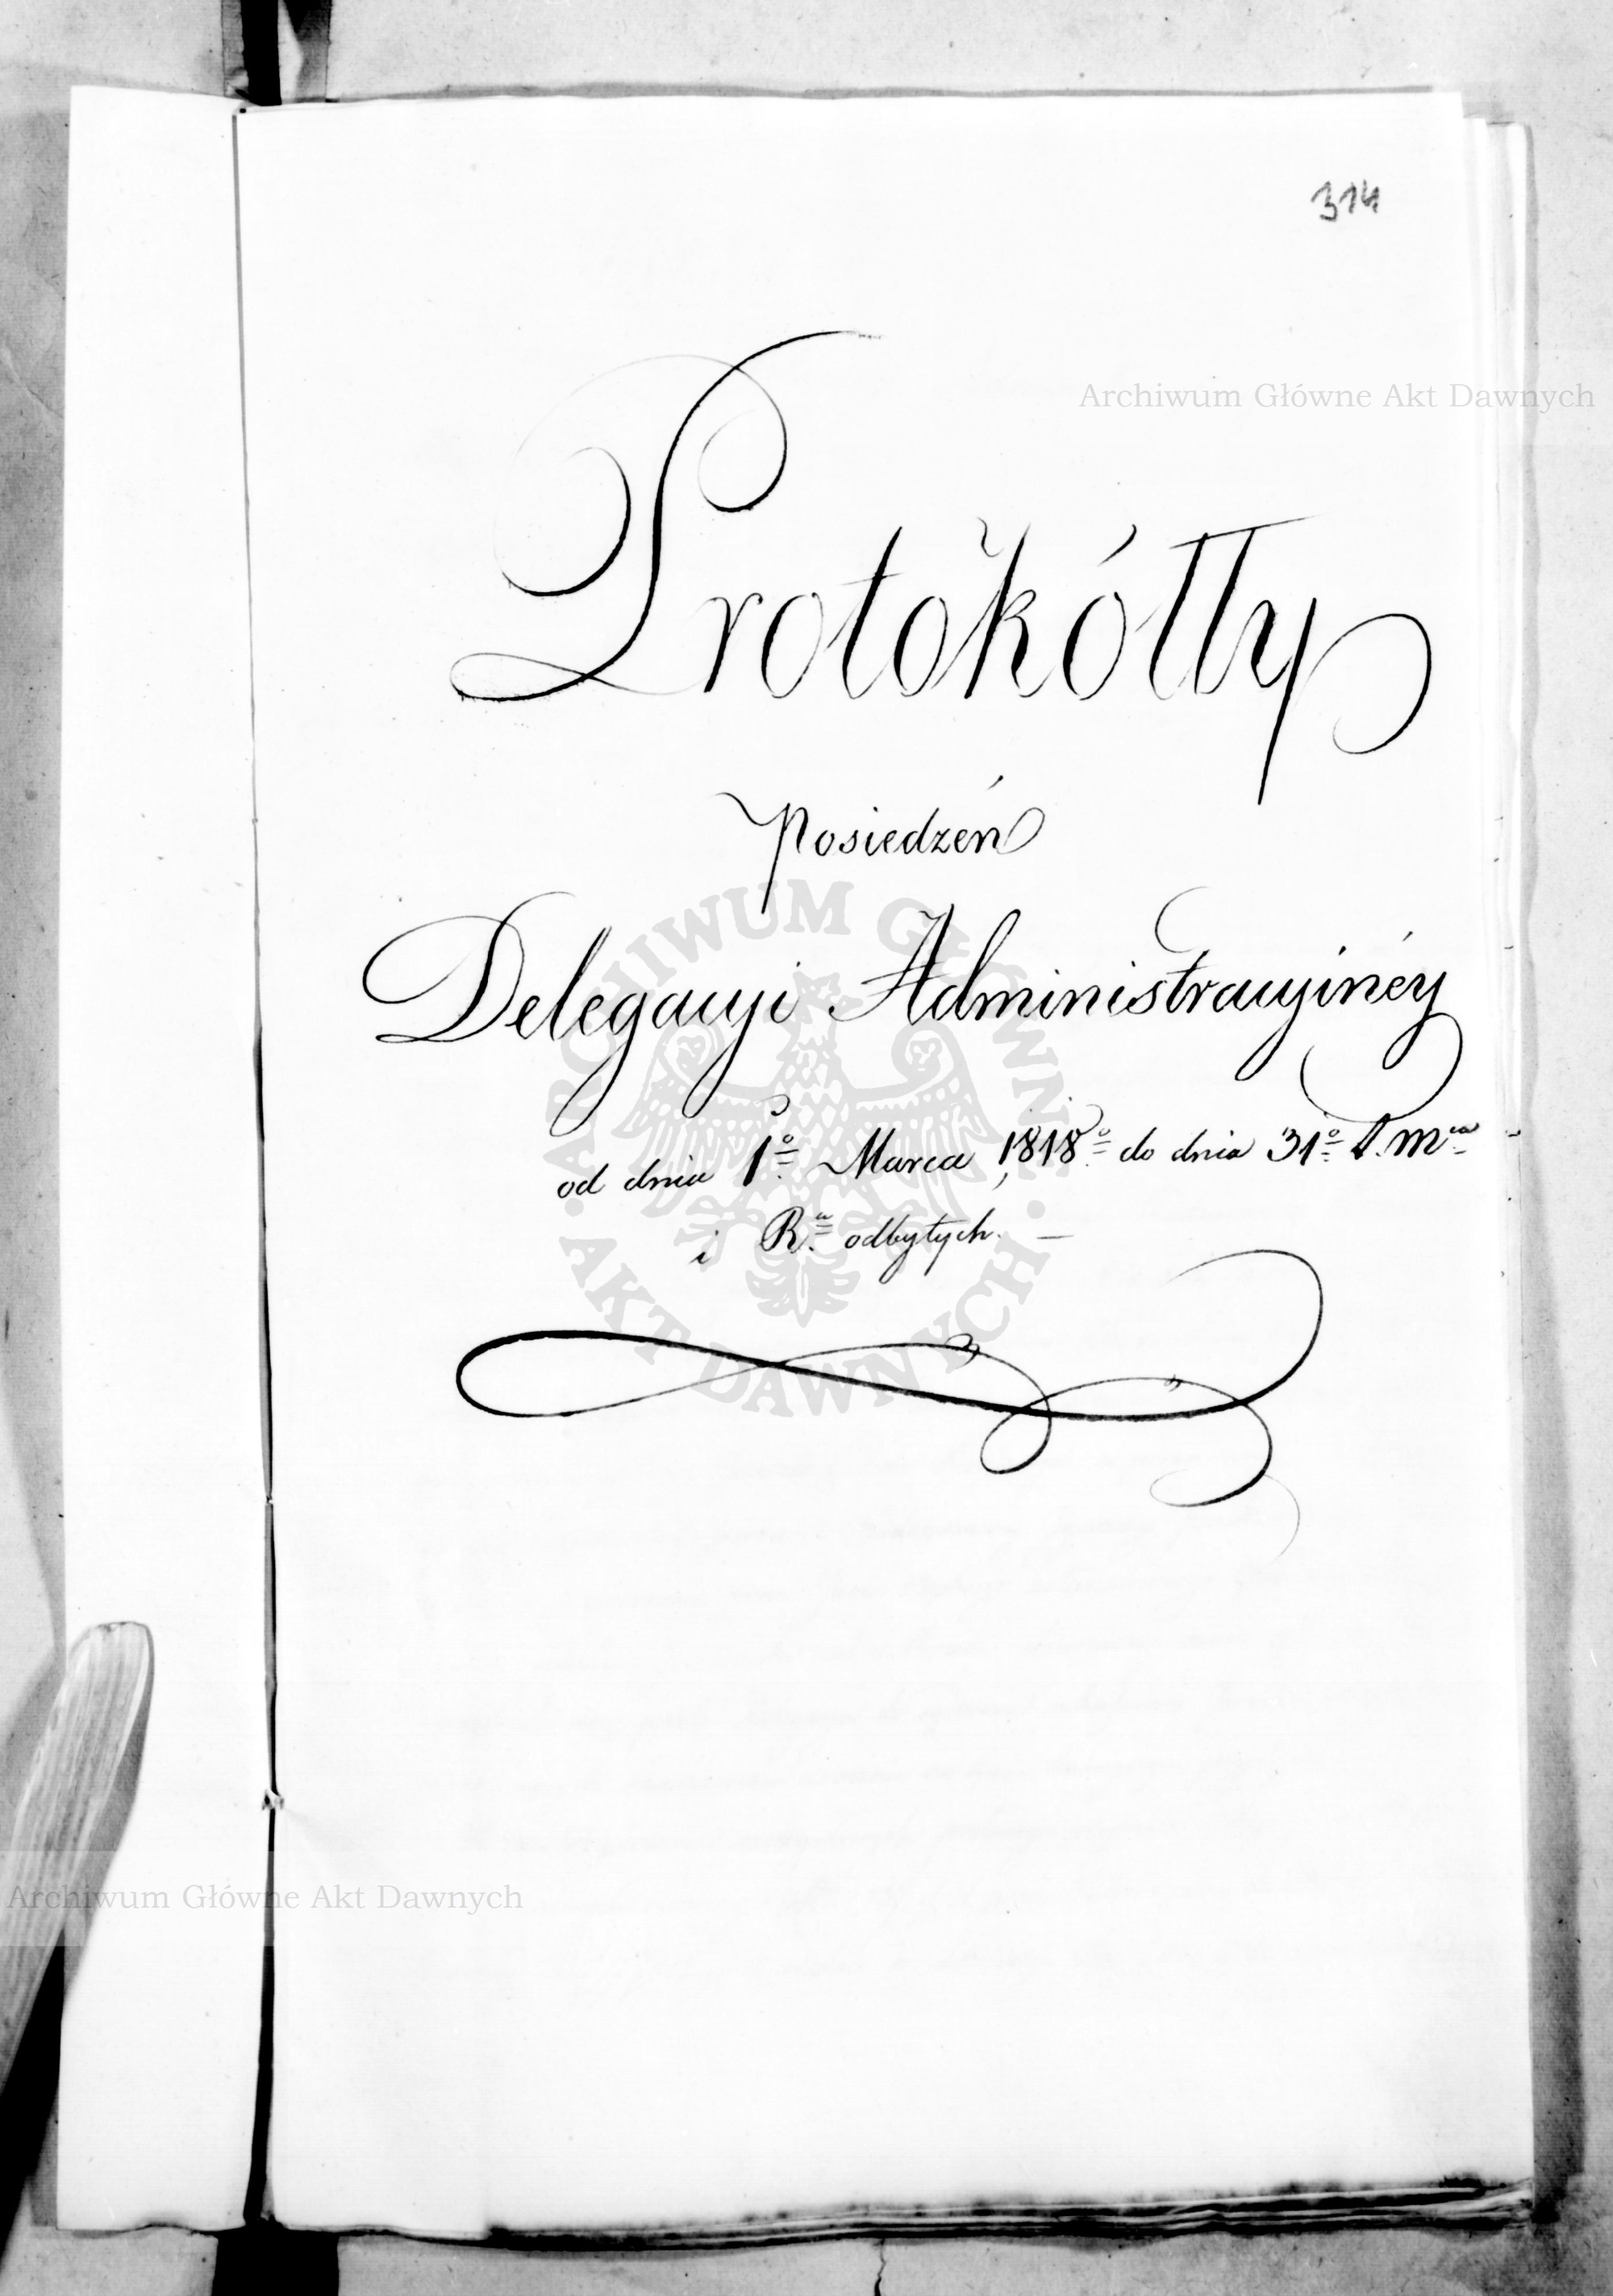 314
Archiwum Główne Akt Dawnych
Protokółły
Posiedzeń
Delegacyi Administracyinéy
od dnia 1º Marca 1818º do dnia 31º t. mca
i Rª odbytych. —
ARCHIWUM GŁÓWNE · AKT DAWNYCH ·
Archiwum Główne Akt Dawnych